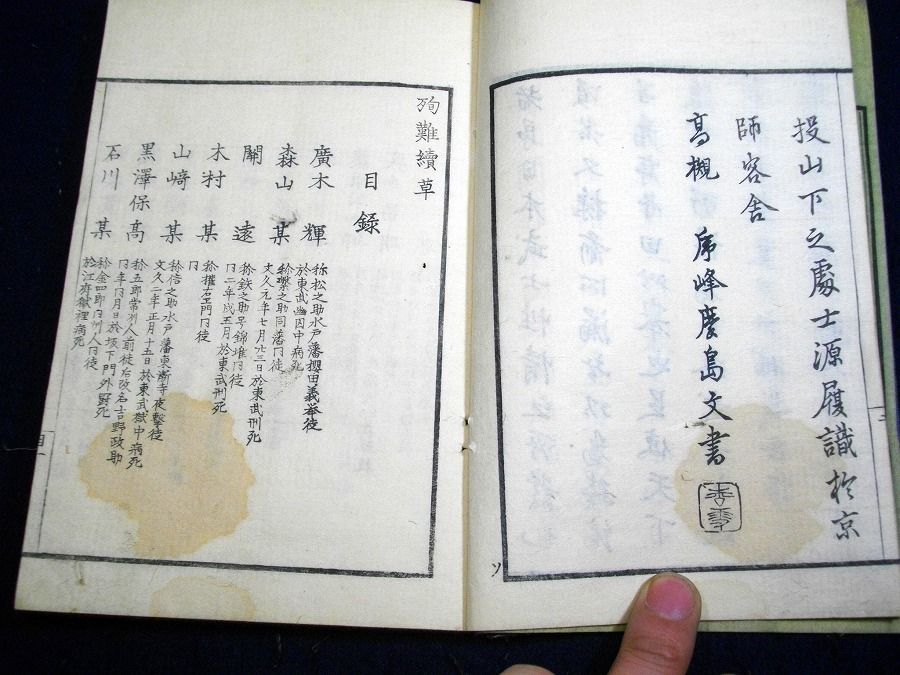 投山下之處士源履識於京
師容舎
高槻 席峰慶島文書
殉難續草
目録
廣木 輝
称松之助水戸藩櫻田義挙徒
於東武幽囚中病死
森山 某
称繁之助同藩同徒
文久元年七月廾三日於東武刑死
關 遠
称鉄之助号錦堆同徒
同二年戌五月於東武刑死
木村 某
称権右エ門同徒
同
山﨑 某
称信之助水戸藩東漸寺夜撃徒
文久二年正月十五日於東武獄中病死
黒澤保高
称五郎常州人前徒后改名吉野政助
同年同月日於坂下門外闘死
石川 某
称金四郎同州人同徒
於江府獄裡病死
目一